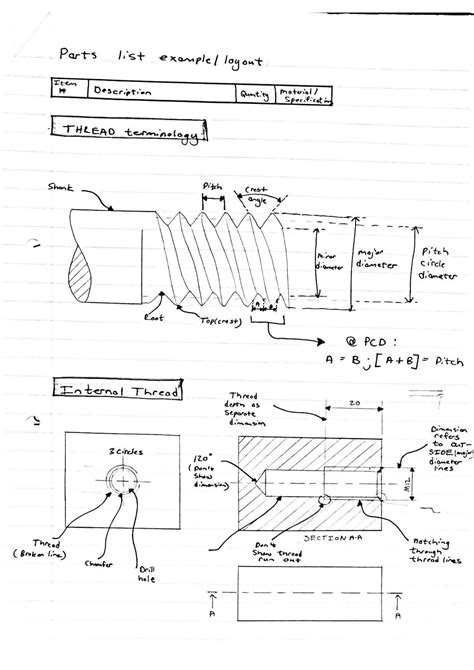 Parts list example/layout
Item # Description Quantity Material/ Specification
THREAD terminology
Shank
Pitch
Crest angle
minor diameter
major diameter
Pitch circle diameter
Root
Top(crest)
A B
@ PCD:
A = B ; [A+B] = Pitch
Internal Thread
Thread depth as separate dimension
20
Dimension refers to OUT-SIDE (major) diameter lines
3 circles
120°
(Don't show dimension)
M12
Thread (Broken line)
Chamfer
Drill hole
Don't show thread run out
SECTION A-A
Hatching through thread lines
A
A